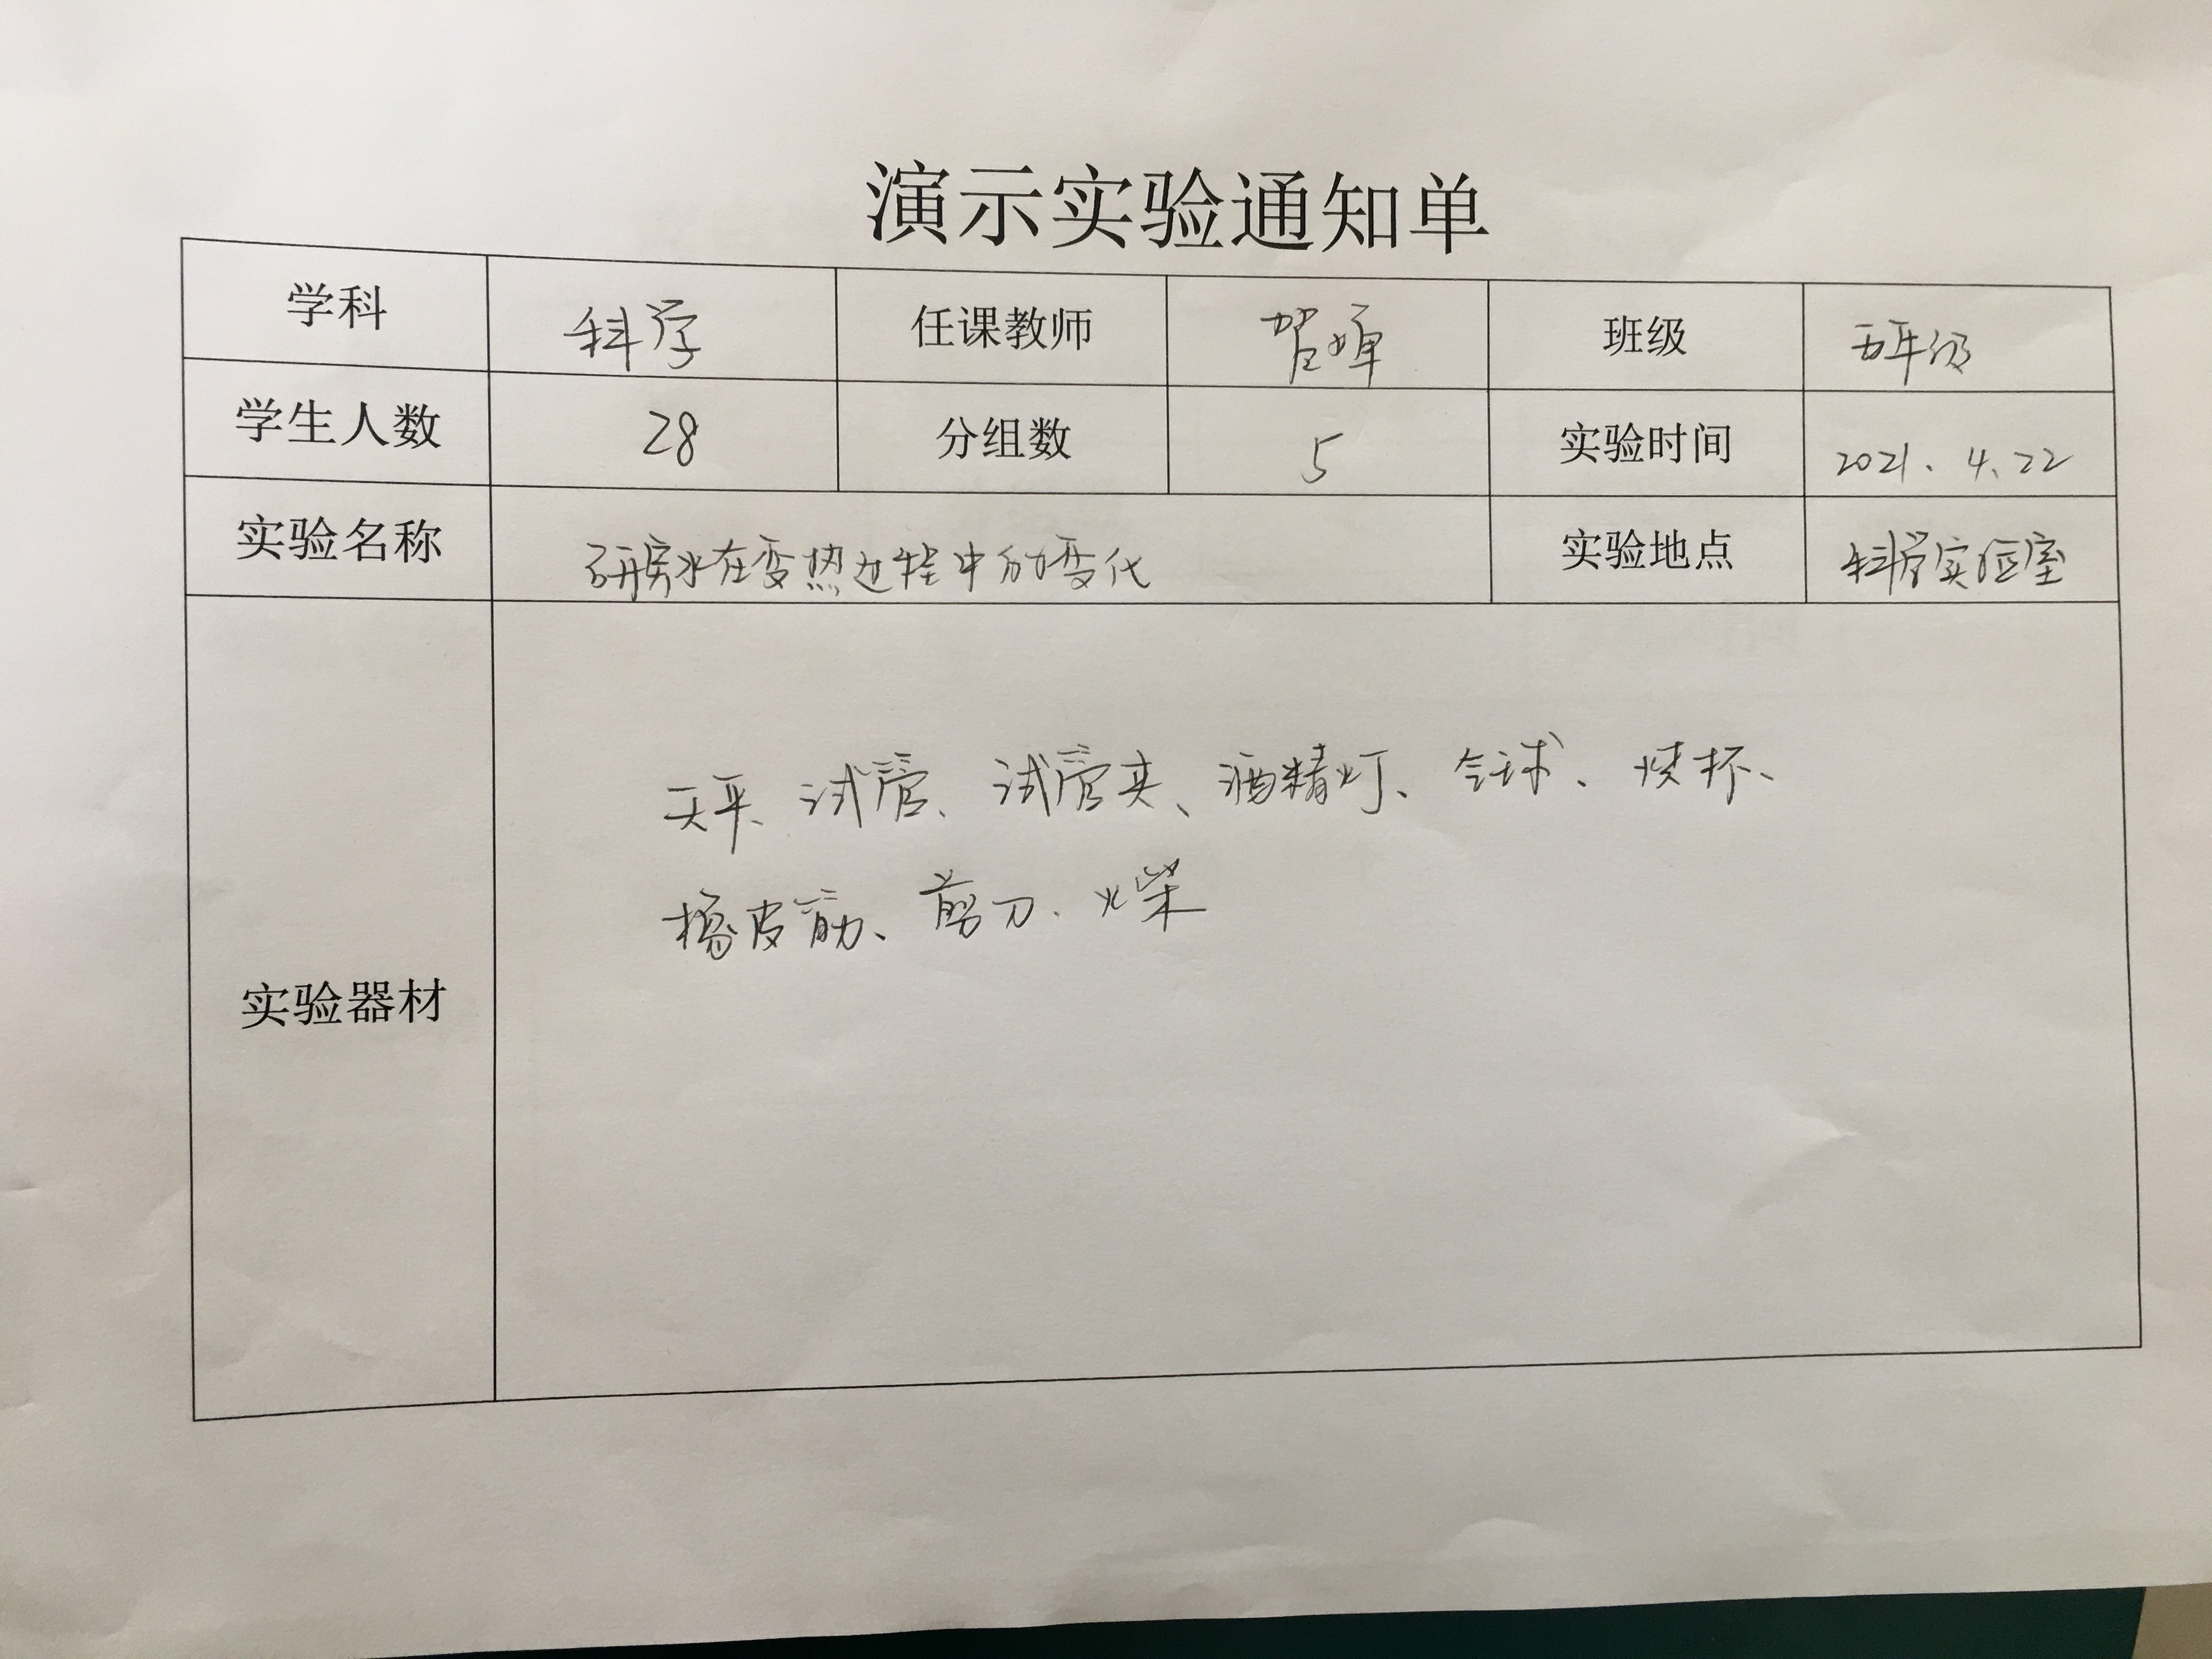 演示实验通知单
学科 科学 任课教师 贺婵 班级 五年级
学生人数 28 分组数 5 实验时间 2021.4.22
实验名称 研究水在变热过程中的变化 实验地点 科学实验室
天平、试管、试管夹、酒精灯、气球、烧杯、
橡皮筋、剪刀、火柴
实验器材